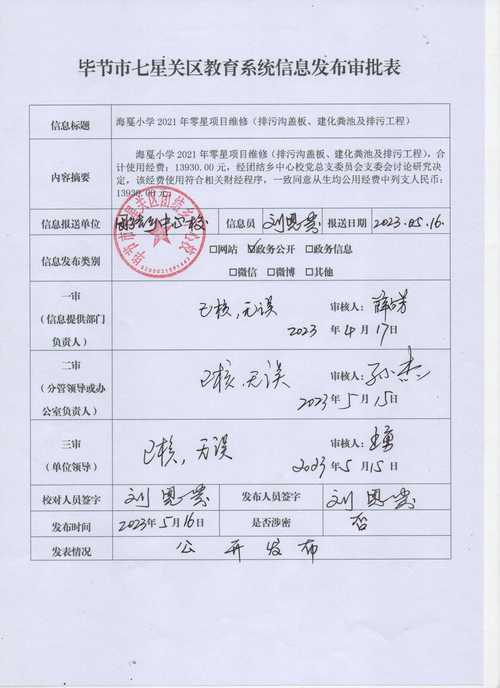 毕节市七星关区教育系统信息发布审批表
信息标题 海戛小学2021年零星项目维修（排污沟盖板、建化粪池及排污工程）
内容摘要 海戛小学2021年零星项目维修（排污沟盖板、建化粪池及排污工程），合
计使用经费：13930.00元，经团结乡中心校党总支委员会支委会讨论研究决
定，该经费使用符合相关财经程序，一致同意从生均公用经费中列支人民币：
13930.00元。
信息报送单位 团结乡中心校 信息员 刘恩 报送日期 2023.05.16.
信息发布类别 □网站 ☑政务公开 □政务信息
□微信 □微博 □其他
一审
（信息提供部门
负责人）
已核,无误
审核人：
2023年4月17日
二审
（分管领导或办
公室负责人）
已核,无误
审核人：孙杰
2023年5月15日
三审
（单位领导）
已核,无误
审核人：
2023年5月15日
校对人员签字 刘恩 发布人员签字 刘恩
发布时间 2023年5月16日 是否涉密 否
发表情况 公开发布
毕节市七星关区团结乡中心校